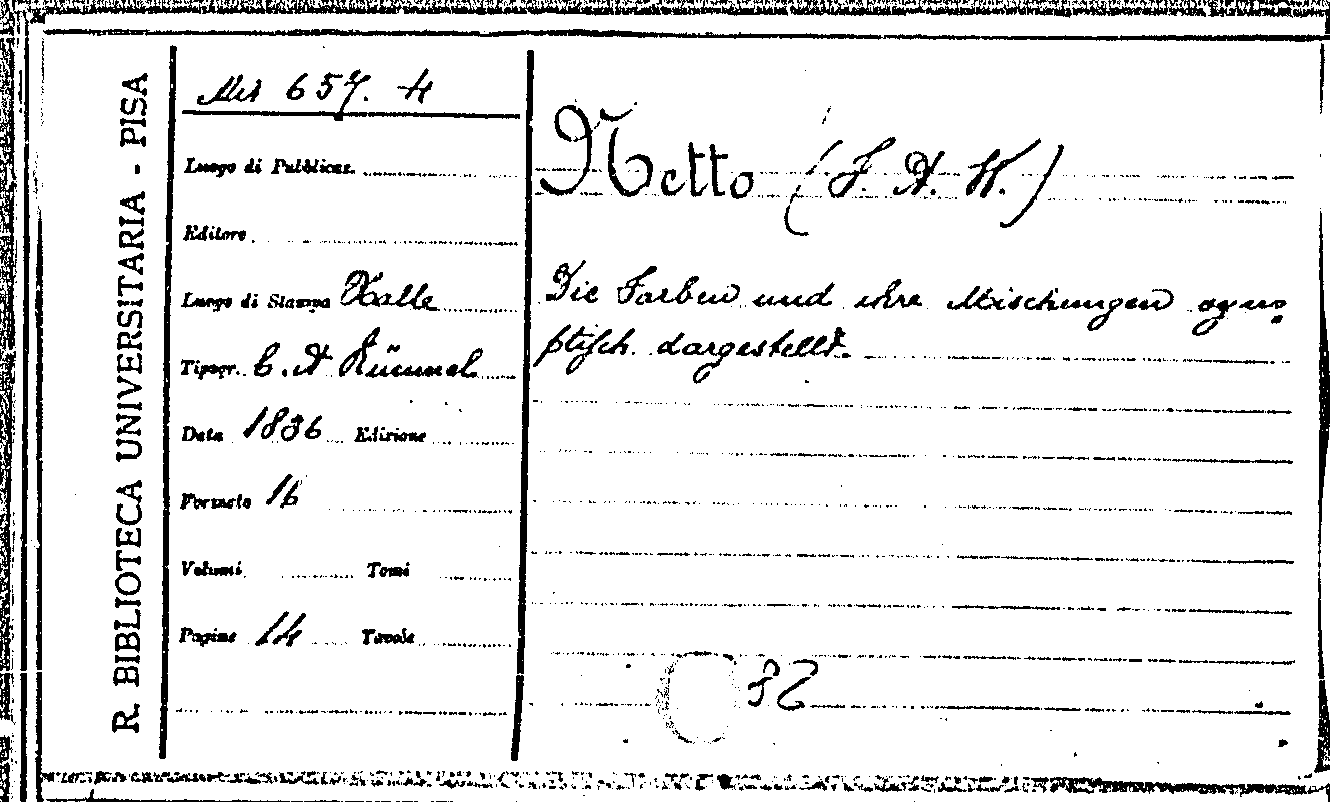 R. BIBLIOTECA UNIVERSITARIA - PISA
Mis 657. 4
Luogo di Pubblicaz.
Editore
Luogo di Stampa Halle
Tipogr. C. A Kümmel
Data 1836 Edizione
Formato 16
Volumi Tomi
Pagine 14 Tavole
Netto (F. A. W.)
Die Farben und ihre Mischungen synop
ptisch. dargestellt.